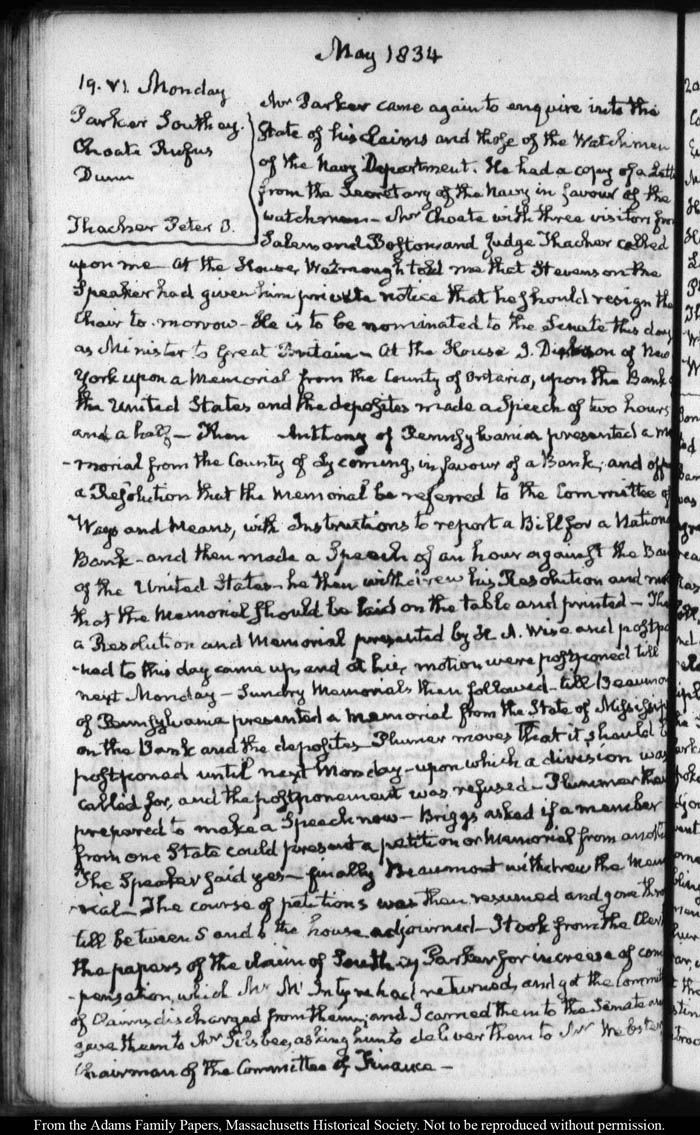 May 1834
19. VI. Monday
Parker Southey.
Choate Rufus
Dunn
Thacher Peter O.
Mr Parker came again to enquire into the
State of his Claims and those of the Watchmen
of the Navy Department. He had a copy of a Lett
from the Secretary of the Navy in favour of the
watchmen – Mr Choate with three visitors from
Salem and Boston and Judge Thacher called
upon me – At the House, Watmough told me that Stevenson the
Speaker had given him private notice that he should resign the
Chair to-morrow – He is to be nominated to the Senate this day
as Minister to Great Britain – At the House J. Dickson of New
York upon a Memorial from the County of Ontario, upon the Bank
the United States and the deposites made a Speech of two hours
and a half – Then Anthony of Pennsylvania presented a me
-morial from the County of Lycoming, in favour of a Bank; and off
a Resolution that the memorial be referred to the Committee of
Ways and Means, with Instructions to report a Bill for a Nation
Bank – and then made a Speech of an hour against the Ban
of the United States – he then withdrew his Resolution and m
that the Memorial should be laid on the table and printed – The
a Resolution and Memorial presented by H. A. Wise and postpo
-ned to this day came up, and at his motion were postponed till
next Monday – Sundry Memorials then followed – till Beaumon
of Pennsylvania presented a memorial from the State of Mississip
on the Bank and the deposites – Plumer moves that it should b
postponed until next Monday – upon which a division was
called for, and the postponement was refused – Plummer then
prepared to make a Speech now – Briggs asked if a member
from one State could present a petition or memorial from anoth
The Speaker said yes – finally Beaumont withdrew the Mem
-rial – The course of petitions was then resumed and gone thro
till between 5 and 6 the house adjourned – I took from the Cler
the papers of the claim of Southey Parker for increase of com
-pensation, which Mr McIntyre had returned, and got the Committ
of Claims discharged from them; and I carried them to the Senate an
gave them to Mr Silsbee, asking him to deliver them to Mr Webster
Chairman of the Committee of Finance –
From the Adams Family Papers, Massachusetts Historical Society. Not to be reproduced without permission.